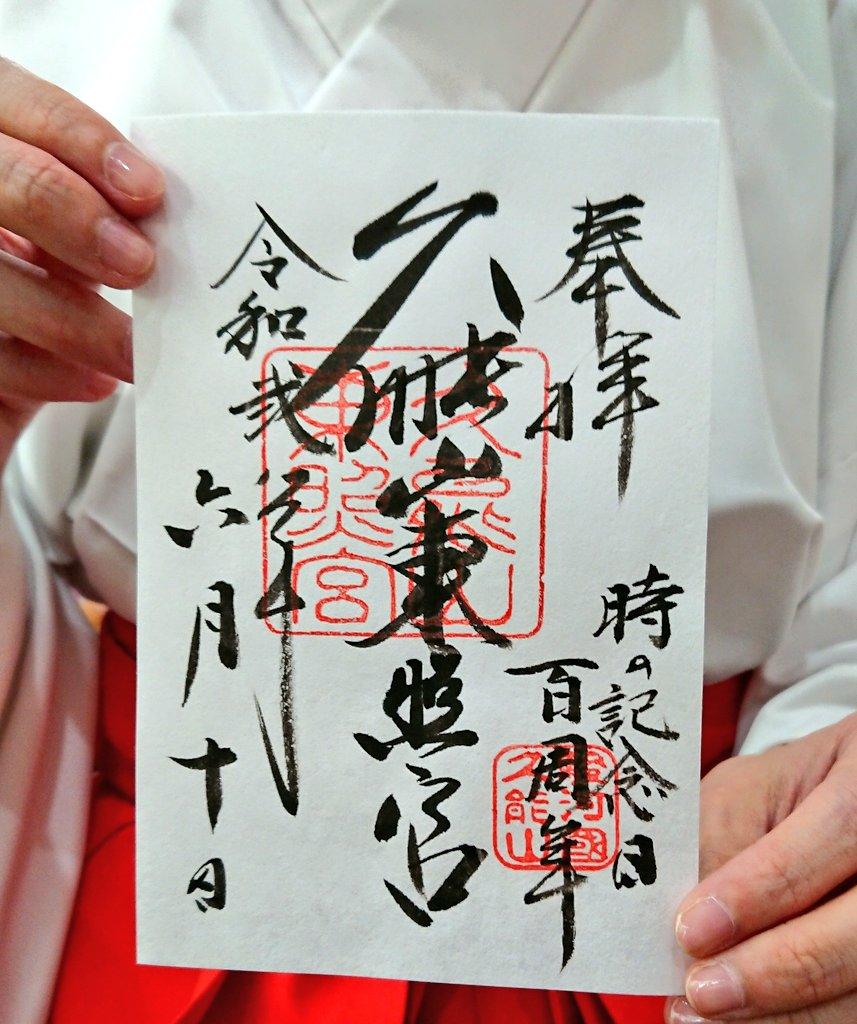 奉拝
時の記念日
百周年
久能山東照宮
令和弐年
六月十日
久能山
東照宮
駿河國
久能山